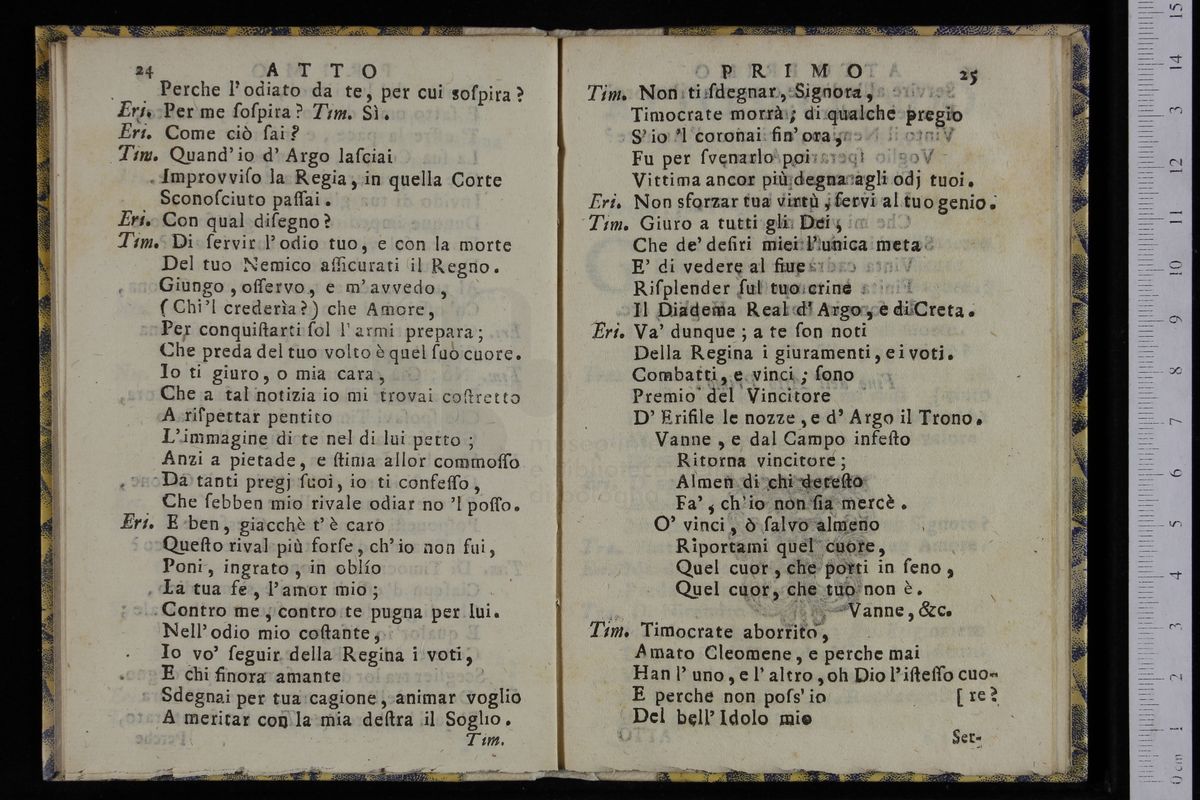 24 ATTO
Perche l'odiato da te, per cui sospira?
Eri. Per me ſoſpira? Tim. Sì.
Eri. Come ciò ſai?
Tim. Quand'io d'Argo laſciai
Improvviſo la Regia, in quella Corte
Sconoſciuto paſſai.
Eri. Con qual diſegno?
Tim. Di ſervir l'odio tuo, e con la morte
Del tuo Nemico aſſicurati il Regno.
Giungo, oſſervo, e m'avvedo,
(Chi'l crederìa?) che Amore,
Per conquiſtarti ſol l'armi prepara;
Che preda del tuo volto è quel ſuo cuore.
Io ti giuro, o mia cara,
Che a tal notizia io mi trovai coſtretto
A riſpettar pentito
L'immagine di te nel di lui petto;
Anzi a pietade, e ſtima allor commoſſo
Da tanti pregj ſuoi, io ti confeſſo,
Che ſebben mio rivale odiar no'l poſſo.
Eri. E ben, giacchè t'è caro
Queſto rival più forſe, ch'io non fui,
Poni, ingrato, in oblío
La tua fe, l'amor mio;
Contro me, contro te pugna per lui.
Nell'odio mio coſtante,
Io vo' ſeguir della Regina i voti,
E chi finora amante
Sdegnai per tua cagione, animar voglio
A meritar con la mia deſtra il Soglio.
Tim.
PRIMO 25
Tim. Non ti ſdegnar, Signora,
Timocrate morrà; di qualche pregio
S'io 'l coronai fin'ora,
Fu per ſvenarlo poi
Vittima ancor più degna agli odj tuoi.
Eri. Non sforzar tua virtù, ſervi al tuo genio.
Tim. Giuro a tutti gli Dei,
Che de' deſiri miei l'unica meta
E' di vedere al fine
Riſplender ſul tuo crine
Il Diadema Real d'Argo, e di Creta.
Eri. Va' dunque; a te ſon noti
Della Regina i giuramenti, e i voti.
Combatti, e vinci; ſono
Premio del Vincitore
D'Erifile le nozze, e d'Argo il Trono.
Vanne, e dal Campo infeſto
Ritorna vincitore;
Almen di chi deteſto
Fa', ch'io non ſia mercè.
O' vinci, ò ſalvo almeno
Riportami quel cuore,
Quel cuor, che porti in ſeno,
Quel cuor, che tuo non è.
Vanne, &c.
Tim. Timocrate aborrito,
Amato Cleomene, e perche mai
Han l'uno, e l'altro, oh Dio l'iſteſſo cuo-
E perche non poſs'io [re?
Del bell'Idolo mio
Ser-